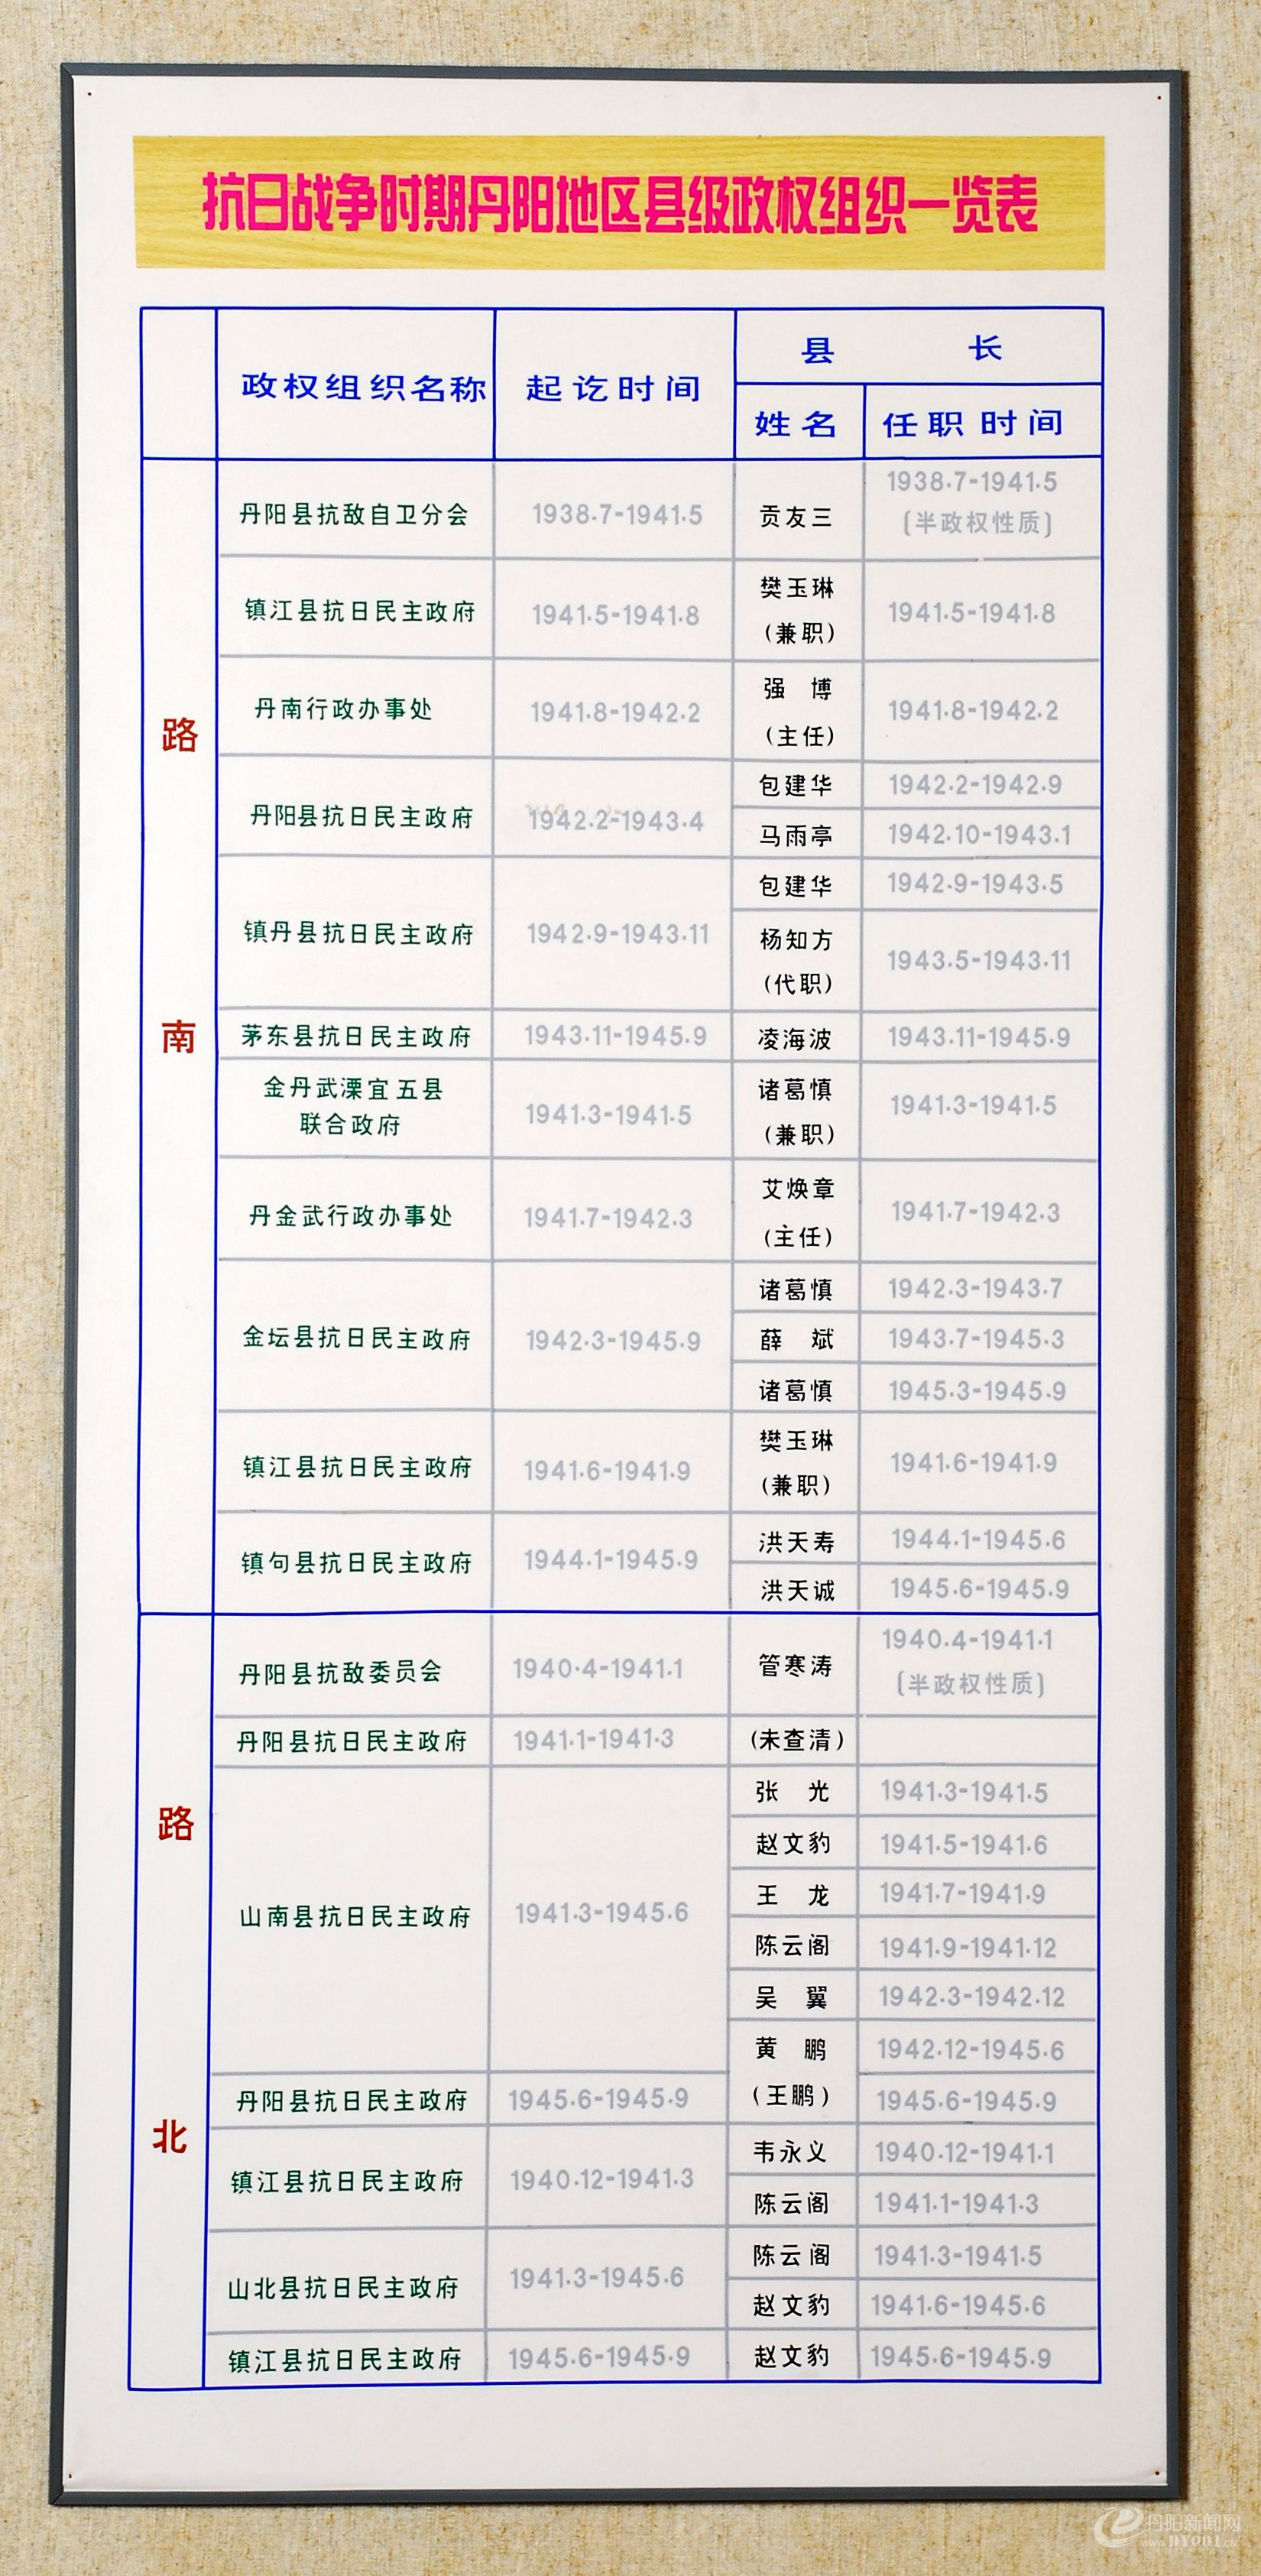 抗日战争时期丹阳地区县级政权组织一览表
政权组织名称 起讫时间 县 长
姓名 任职时间
路南
丹阳县抗敌自卫分会 1938.7-1941.5 贡友三 1938.7-1941.5
〔半政权性质〕
镇江县抗日民主政府 1941.5-1941.8 樊玉琳 1941.5-1941.8
(兼职)
丹南行政办事处 1941.8-1942.2 强 博 1941.8-1942.2
(主任)
丹阳县抗日民主政府 1942.2-1943.4 包建华 1942.2-1942.9
马雨亭 1942.10-1943.1
镇丹县抗日民主政府 1942.9-1943.11 包建华 1942.9-1943.5
杨知方 1943.5-1943.11
(代职)
茅东县抗日民主政府 1943.11-1945.9 凌海波 1943.11-1945.9
金丹武溧宜五县 1941.3-1941.5 诸葛慎 1941.3-1941.5
联合政府 (兼职)
丹金武行政办事处 1941.7-1942.3 艾焕章 1941.7-1942.3
(主任)
金坛县抗日民主政府 1942.3-1945.9 诸葛慎 1942.3-1943.7
薛 斌 1943.7-1945.3
诸葛慎 1945.3-1945.9
镇江县抗日民主政府 1941.6-1941.9 樊玉琳 1941.6-1941.9
(兼职)
镇句县抗日民主政府 1944.1-1945.9 洪天寿 1944.1-1945.6
洪天诚 1945.6-1945.9
路北
丹阳县抗敌委员会 1940.4-1941.1 管寒涛 1940.4-1941.1
〔半政权性质〕
丹阳县抗日民主政府 1941.1-1941.3 (未查清)
山南县抗日民主政府 1941.3-1945.6 张 光 1941.3-1941.5
赵文豹 1941.5-1941.6
王 龙 1941.7-1941.9
陈云阁 1941.9-1941.12
吴 翼 1942.3-1942.12
黄 鹏 1942.12-1945.6
丹阳县抗日民主政府 1945.6-1945.9 (王鹏) 1945.6-1945.9
镇江县抗日民主政府 1940.12-1941.3 韦永义 1940.12-1941.1
陈云阁 1941.1-1941.3
山北县抗日民主政府 1941.3-1945.6 陈云阁 1941.3-1941.5
赵文豹 1941.6-1945.6
镇江县抗日民主政府 1945.6-1945.9 赵文豹 1945.6-1945.9
丹阳新闻网
www.DY001.CN